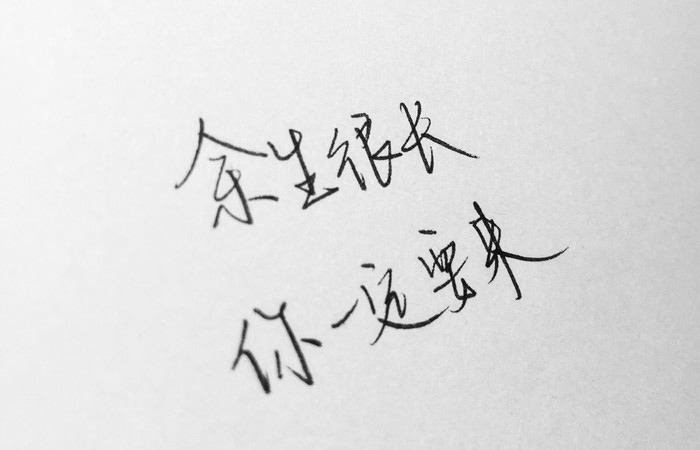 余生很长
你一定要来